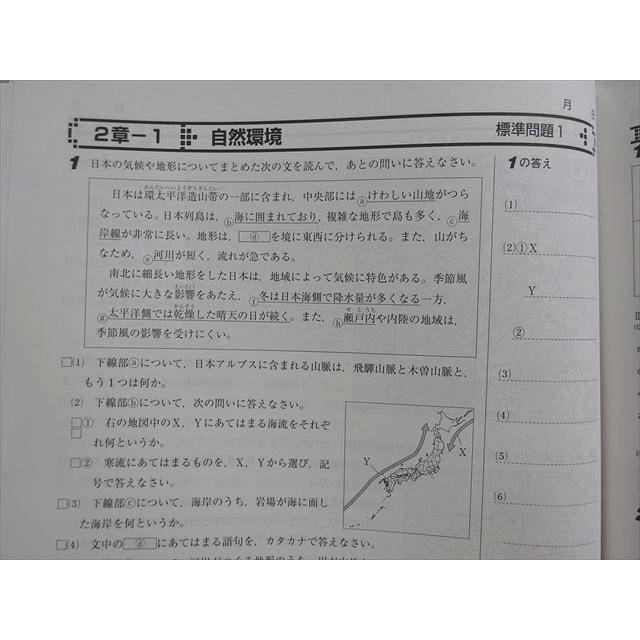 月
2章-1 自然環境 標準問題1
1 日本の気候や地形についてまとめた次の文を読んで,あとの問いに答えなさい。
かんたいへいようぞうざんたい
日本は環太平洋造山帯の一部に含まれ,中央部にはⓐけわしい山地がつら
なっている。日本列島は,ⓑ海に囲まれており,複雑な地形で島も多く,ⓒ海
岸線が非常に長い。地形は,ⓓを境に東西に分けられる。また,山がち
なため,ⓔ河川が短く,流れが急である。
南北に細長い地形をした日本は,地域によって気候に特色がある。季節風
えいきょう
が気候に大きな影響をあたえ,ⓕ冬は日本海側で降水量が多くなる一方,
かんそう せとうち
ⓖ太平洋側では乾燥した晴天の日が続く。また,ⓗ瀬戸内や内陸の地域は,
季節風の影響を受けにくい。
□(1) 下線部ⓐについて,日本アルプスに含まれる山脈は,飛驒山脈と木曽山脈と,
もう1つは何か。
(2) 下線部ⓑについて,次の問いに答えなさい。
□① 右の地図中のX,Yにあてはまる海流をそれぞ
□ れ何というか。
□② 寒流にあてはまるものを,X,Yから選び,記
号で答えなさい。
□(3) 下線部ⓒについて,海岸のうち,岩場が海に面し
た海岸を何というか。
□(4) 文中のⓓにあてはまる語句を,カタカナで答えなさい。
X
Y
1の答え
(1)
(2)①X
Y
②
(3)
(4)
(5)
(6)